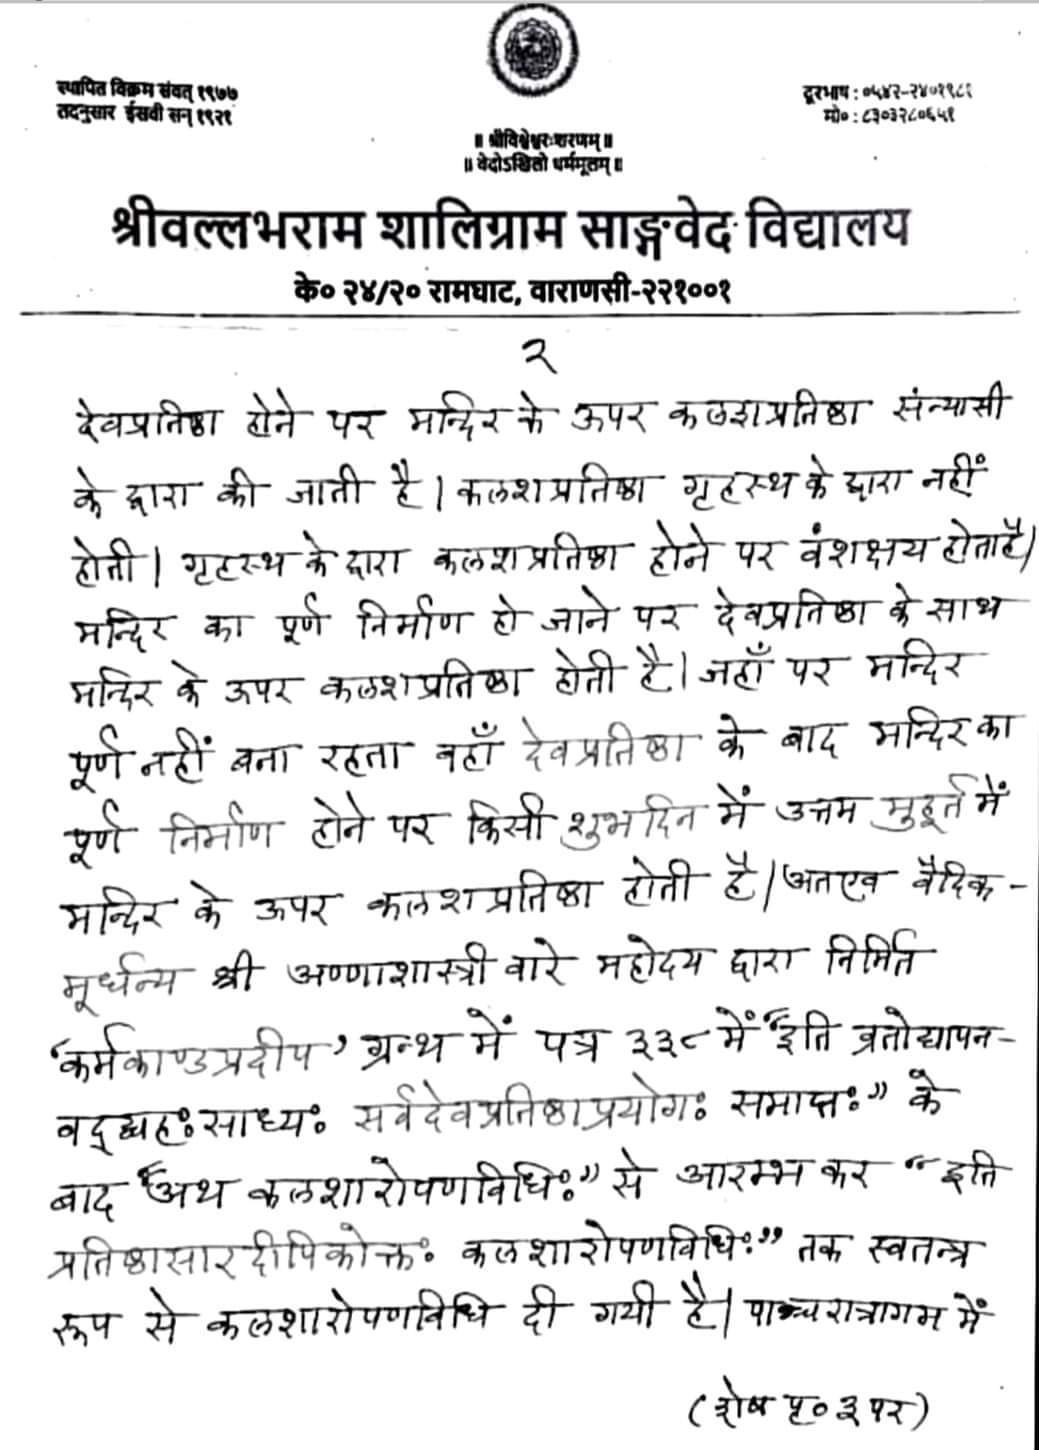 स्थापित विक्रम संवत् १९७७
तदनुसार ईसवी सन् १९२१
दूरभाष : ०५४२-२४०१९८१
मो० : ८३०३२८०६५१
॥ श्रीविश्वेश्वरः शरणम् ॥
॥ वेदोऽखिलो धर्ममूलम् ॥
श्रीवल्लभराम शालिग्राम साङ्गवेद विद्यालय
के० २४/२० रामघाट, वाराणसी-२२१००१
२
देवप्रतिष्ठा होने पर मन्दिर के ऊपर कलशप्रतिष्ठा संन्यासी
के द्वारा की जाती है। कलशप्रतिष्ठा गृहस्थ के द्वारा नहीं
होती। गृहस्थ के द्वारा कलशप्रतिष्ठा होने पर वंशक्षय होता है।
मन्दिर का पूर्ण निर्माण हो जाने पर देवप्रतिष्ठा के साथ
मन्दिर के ऊपर कलशप्रतिष्ठा होती है। जहाँ पर मन्दिर
पूर्ण नहीं बना रहता वहाँ देवप्रतिष्ठा के बाद मन्दिर का
पूर्ण निर्माण होने पर किसी शुभदिन में उत्तम मुहूर्त में
मन्दिर के ऊपर कलशप्रतिष्ठा होती है। अतएव वैदिक-
मूर्धन्य श्री अण्णाशास्त्री वारे महोदय द्वारा निर्मित
‘कर्मकाण्डप्रदीप’ ग्रन्थ में पत्र ३३८ में “इति व्रतोद्यापन-
वद्द्व्यहःसाध्यः सर्वदेवप्रतिष्ठाप्रयोगः समाप्तः” के
बाद “अथ कलशारोपणविधिः” से आरम्भ कर “इति
प्रतिष्ठासारदीपिकोक्तः कलशारोपणविधिः” तक स्वतन्त्र
रूप से कलशारोपणविधि दी गयी है। पाञ्चरात्रागम में
(शेष पृ० ३ पर)